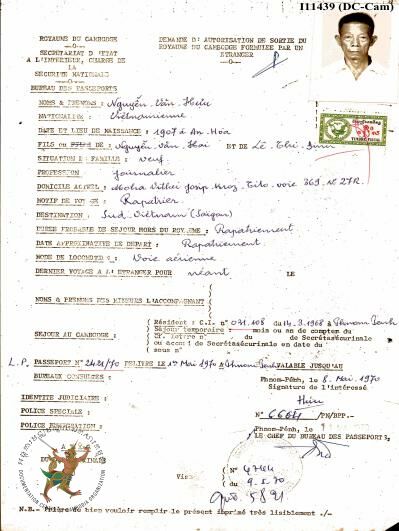 I11439 (DC-Cam)
ROYAUME DU CAMBODGE
SECRETARIAT D'ETAT
A L'INTERIEUR, CHARGE DE
LA
SECURITE NATIONALE
BUREAU DES PASSEPORTS
DEMANDE D'AUTORISATION DE SORTIE DU
ROYAUME DU CAMBODGE FORMULEE PAR UN
ETRANGER
NOMS & PRENOMS : Nguyễn-Văn-Hiếu
NATIONALITE : Vietnamienne
DATE ET LIEU DE NAISSANCE : 1907 à An-Hòa
FILS ou FILLE DE : Nguyễn-Văn-Hai ET DE Lê-Thị-
SITUATION DE FAMILLE : Veuf
PROFESSION : Journalier
DOMICILE ACTUEL : Moha Vithei Josip Broz Tito voie 369 N° 27R.
MOTIF DE VOYAGE : Rapatrier
DESTINATION : Sud-Vietnam (Saigon)
DUREE PROBABLE DE SEJOUR HORS DU ROYAUME : Rapatriement
DATE APPROXIMATIVE DE DEPART : Rapatriement
MODE DE LOCOMOTION : Voie aérienne
DERNIER VOYAGE A L'ETRANGER POUR néant LE
NOMS & PRENOMS DES MINEURS L'ACCOMPAGNANT
SEJOUR AU CAMBODGE :
Résident : C.I. N° 031.108 du 14.3.1968 à Phnom Penh
Séjour temporaire mois ou an de compter du
L.P. PASSEPORT N° 2421/70 DELIVRE LE 1er Mai 1970 à Phnom Penh VALABLE JUSQU'AU
BUREAUX CONSULTES :
Phnom-Pénh, le 8. Mai. 1970
Signature de l'intéressé
Hiếu
IDENTITE JUDICIAIRE :
POLICE SPECIALE :
N° 6664 /PN/BPP.-
PHNOM-PENH, le
LE CHEF DU BUREAU DES PASSEPORTS,
Visa
N° 4744
9.5.70
5891
DOCUMENTATION CENTER OF CAMBODIA ORGANIZATION
N.B.- Prière de bien vouloir remplir le présent imprimé très lisiblement ./-